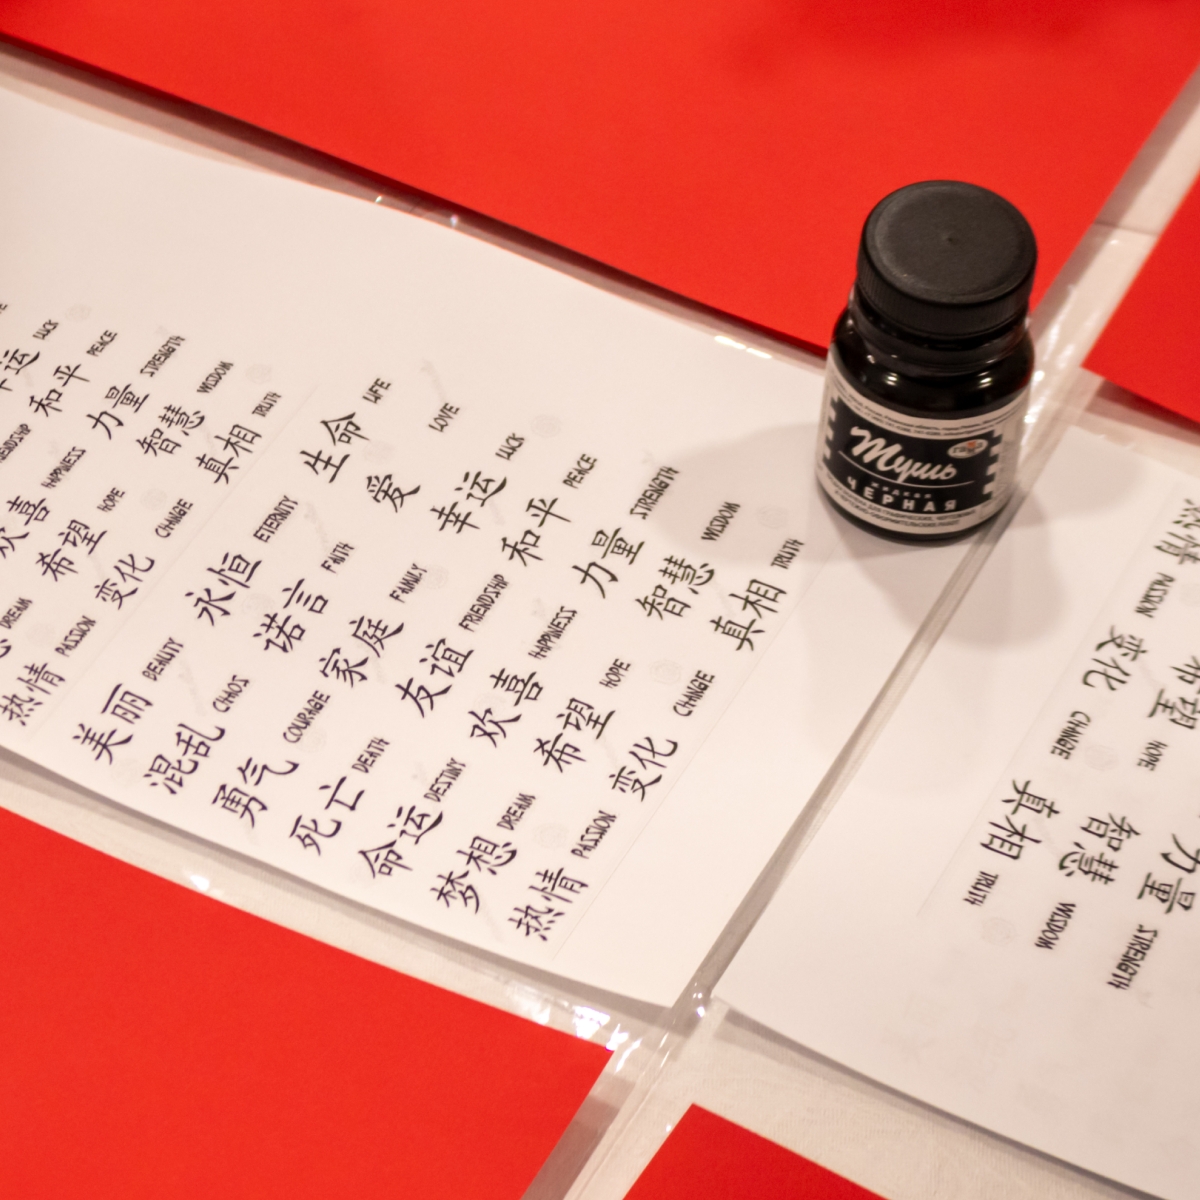 幸运 LUCK
和平 PEACE
欢喜 HAPPINESS 力量 STRENGTH
DREAM 希望 HOPE 智慧 WISDOM
热情 PASSION 变化 CHANGE 真相 TRUTH
美丽 BEAUTY 永恒 ETERNITY 生命 LIFE
混乱 CHAOS 诺言 FAITH 爱 LOVE
勇气 COURAGE 家庭 FAMILY 幸运 LUCK
死亡 DEATH 友谊 FRIENDSHIP 和平 PEACE
命运 DESTINY 欢喜 HAPPINESS 力量 STRENGTH
梦想 DREAM 希望 HOPE 智慧 WISDOM
热情 PASSION 变化 CHANGE 真相 TRUTH
ГАММА
Тушь
ЖИДКАЯ
ЧЕРНАЯ
力量 STRENGTH
希望 HOPE 智慧 WISDOM
热情 PASSION 变化 CHANGE 真相 TRUTH